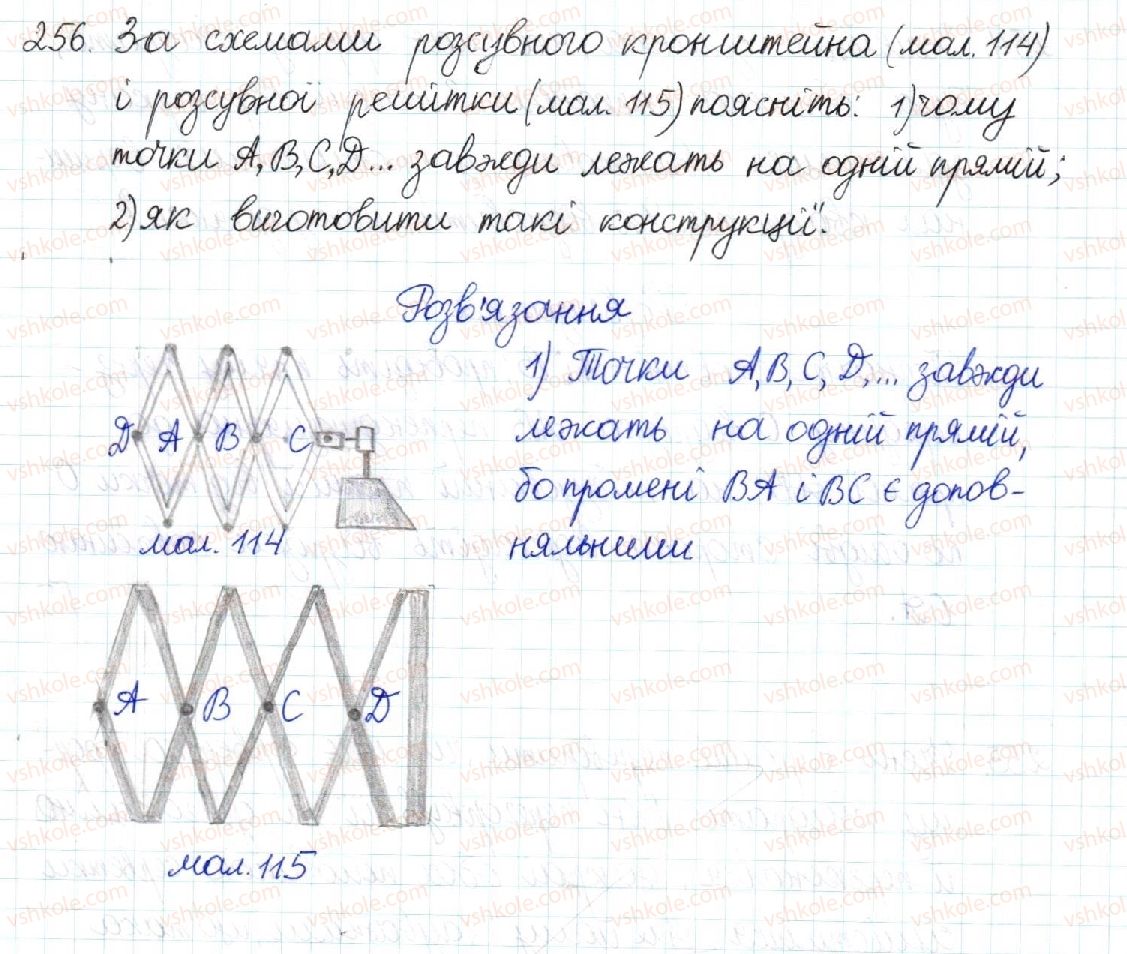 256. За схемами розсувного кронштейна (мал. 114)
і розсувної решітки (мал. 115) поясніть: 1) чому
точки A, B, C, D... завжди лежать на одній прямій;
2) як виготовити такі конструкції".
Розв'язання
1) Точки A, B, C, D, ... завжди
лежать на одній прямій,
бо промені BA і BC є допов-
няльними
D A B C
мал. 114
A B C D
мал. 115
vshkole.com